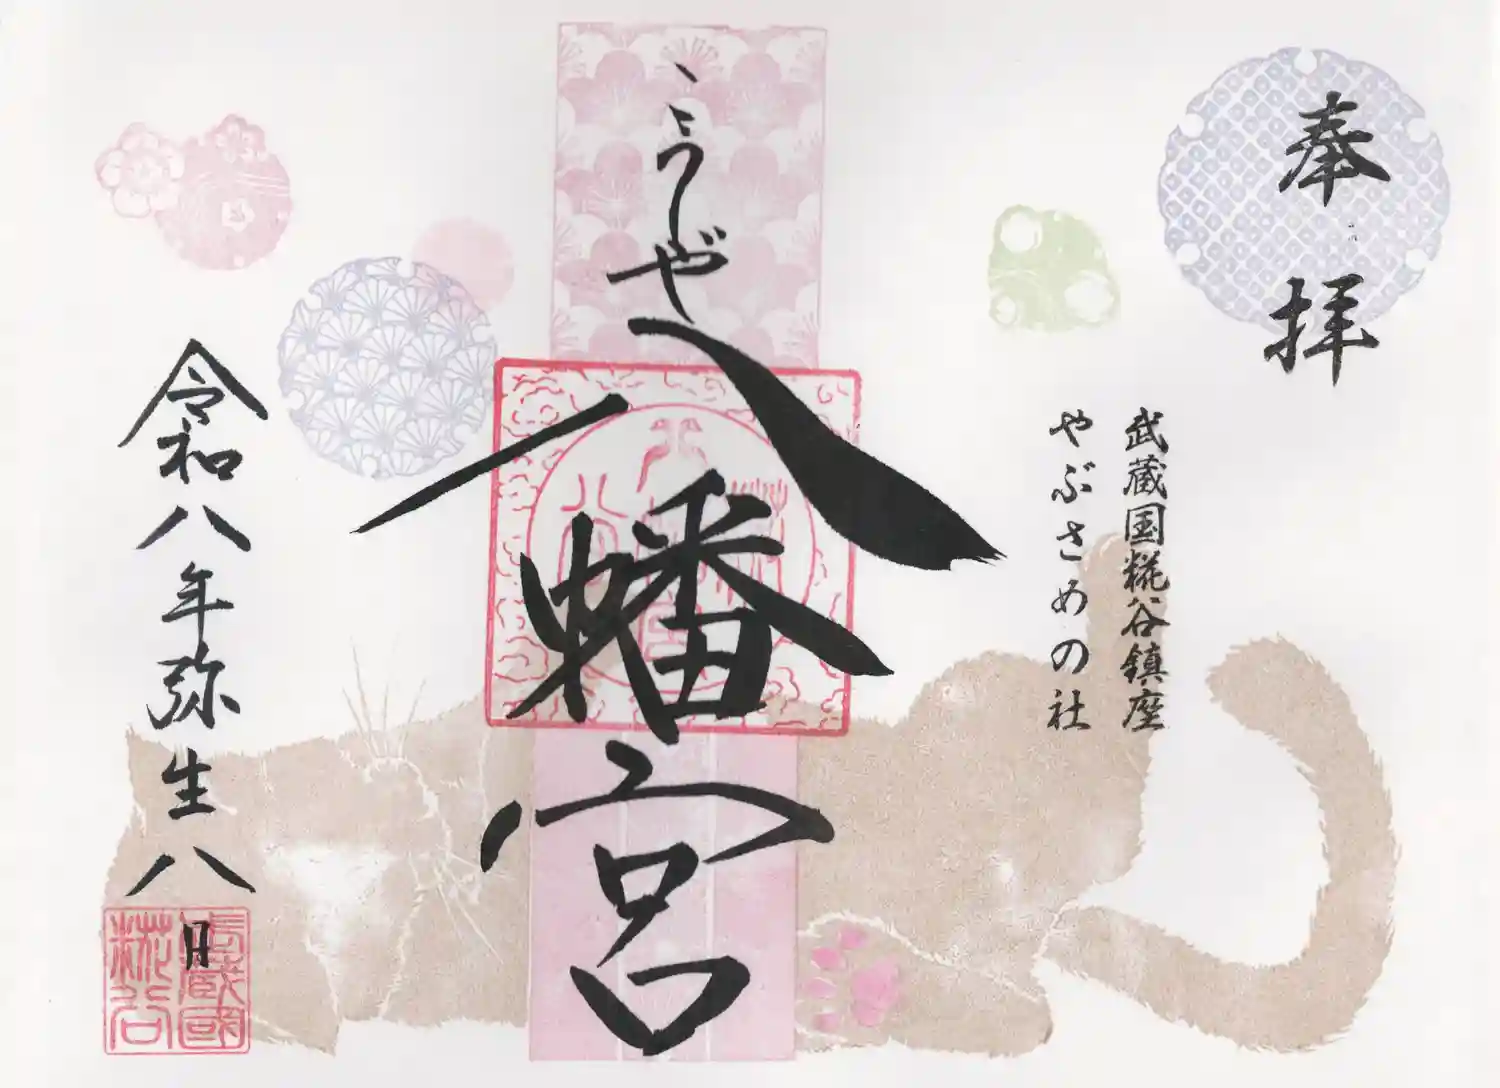 奉拝
武蔵国糀谷鎮座
やぶさめの社
こうじや
八幡宮
令和八年弥生八日
武蔵國
糀谷